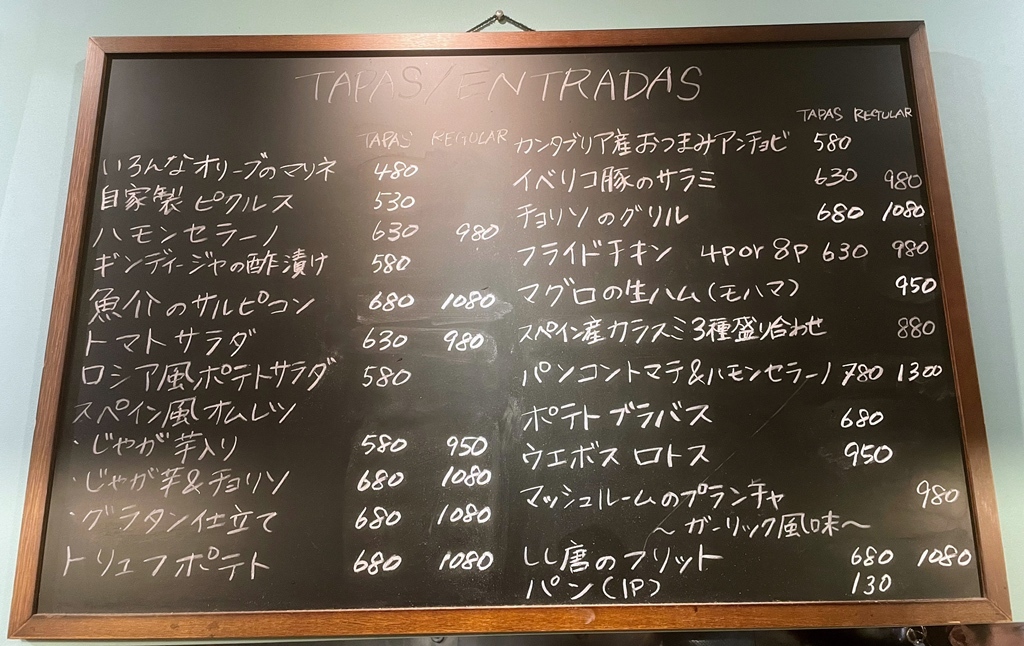 TAPAS/ENTRADAS
TAPAS REGULAR
いろんなオリーブのマリネ 480
自家製 ピクルス 530
ハモンセラーノ 630 980
ギンディージャの酢漬け 580
魚介のサルピコン 680 1080
トマトサラダ 630 980
ロシア風ポテトサラダ 580
スペイン風オムレツ
・じゃが芋入り 580 950
・じゃが芋&チョリソ 680 1080
・グラタン仕立て 680 1080
トリュフポテト 680 1080
TAPAS REGULAR
カンタブリア産おつまみアンチョビ 580
イベリコ豚のサラミ 630 980
チョリソのグリル 680 1080
フライドチキン 4P or 8P 630 980
マグロの生ハム(モハマ) 950
スペイン産カラスミ3種盛り合わせ 880
パンコントマテ&ハモンセラーノ 780 1300
ポテトブラバス 680
ウエボス ロトス 950
マッシュルームのプランチャ 980
〜ガーリック風味〜
しし唐のフリット 680 1080
パン(1P) 130